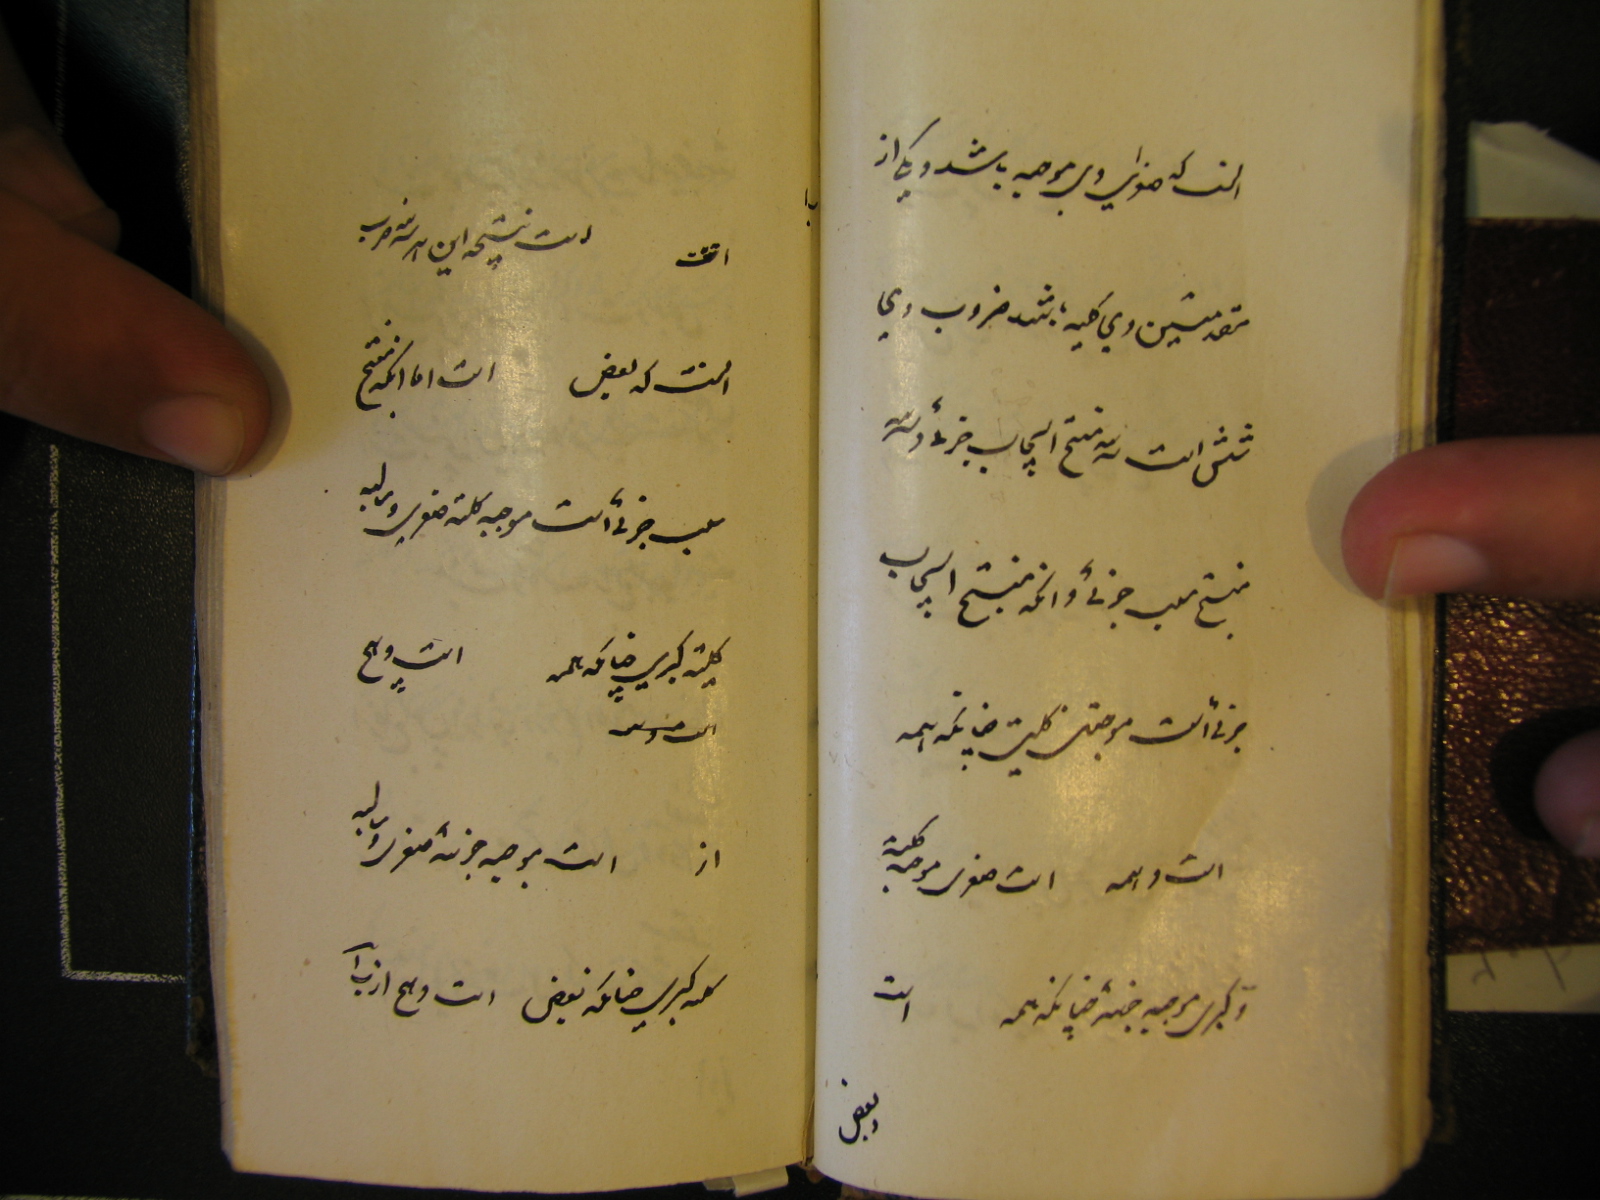 آنست که صغرای وی موجبه باشد و یکی از
مقدمتین وی کلیه باشد ضروب وی
شش است سه منتج ایجاب جزئی و سه
منتج سلب جزئی و آنکه منتج ایجاب
جزئی است موجبتین کلیتین چنانکه همه
است و همه است صغری موجبه کلیة
و کبری موجبه جزئیة چنانکه همه است
و بعض
است نتیجه این هر سه ضرب
آنست که بعض است اما آنکه منتج
سلب جزئی است موجبه کلیة صغری و سالبه
کلیة کبری چنانکه همه است و هیچ
از است موجبه جزئیة صغری و سالبه
کلیه کبری چنانکه بعض است و هیچ از